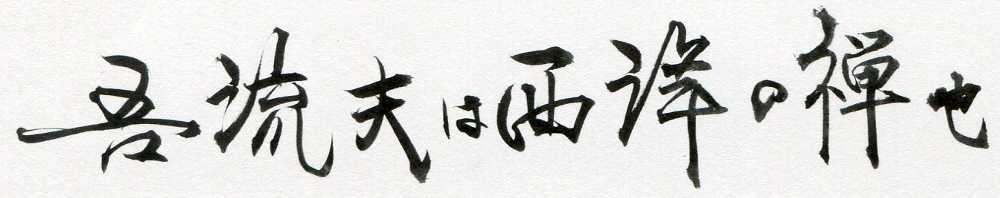 吾流夫は西洋の禅也